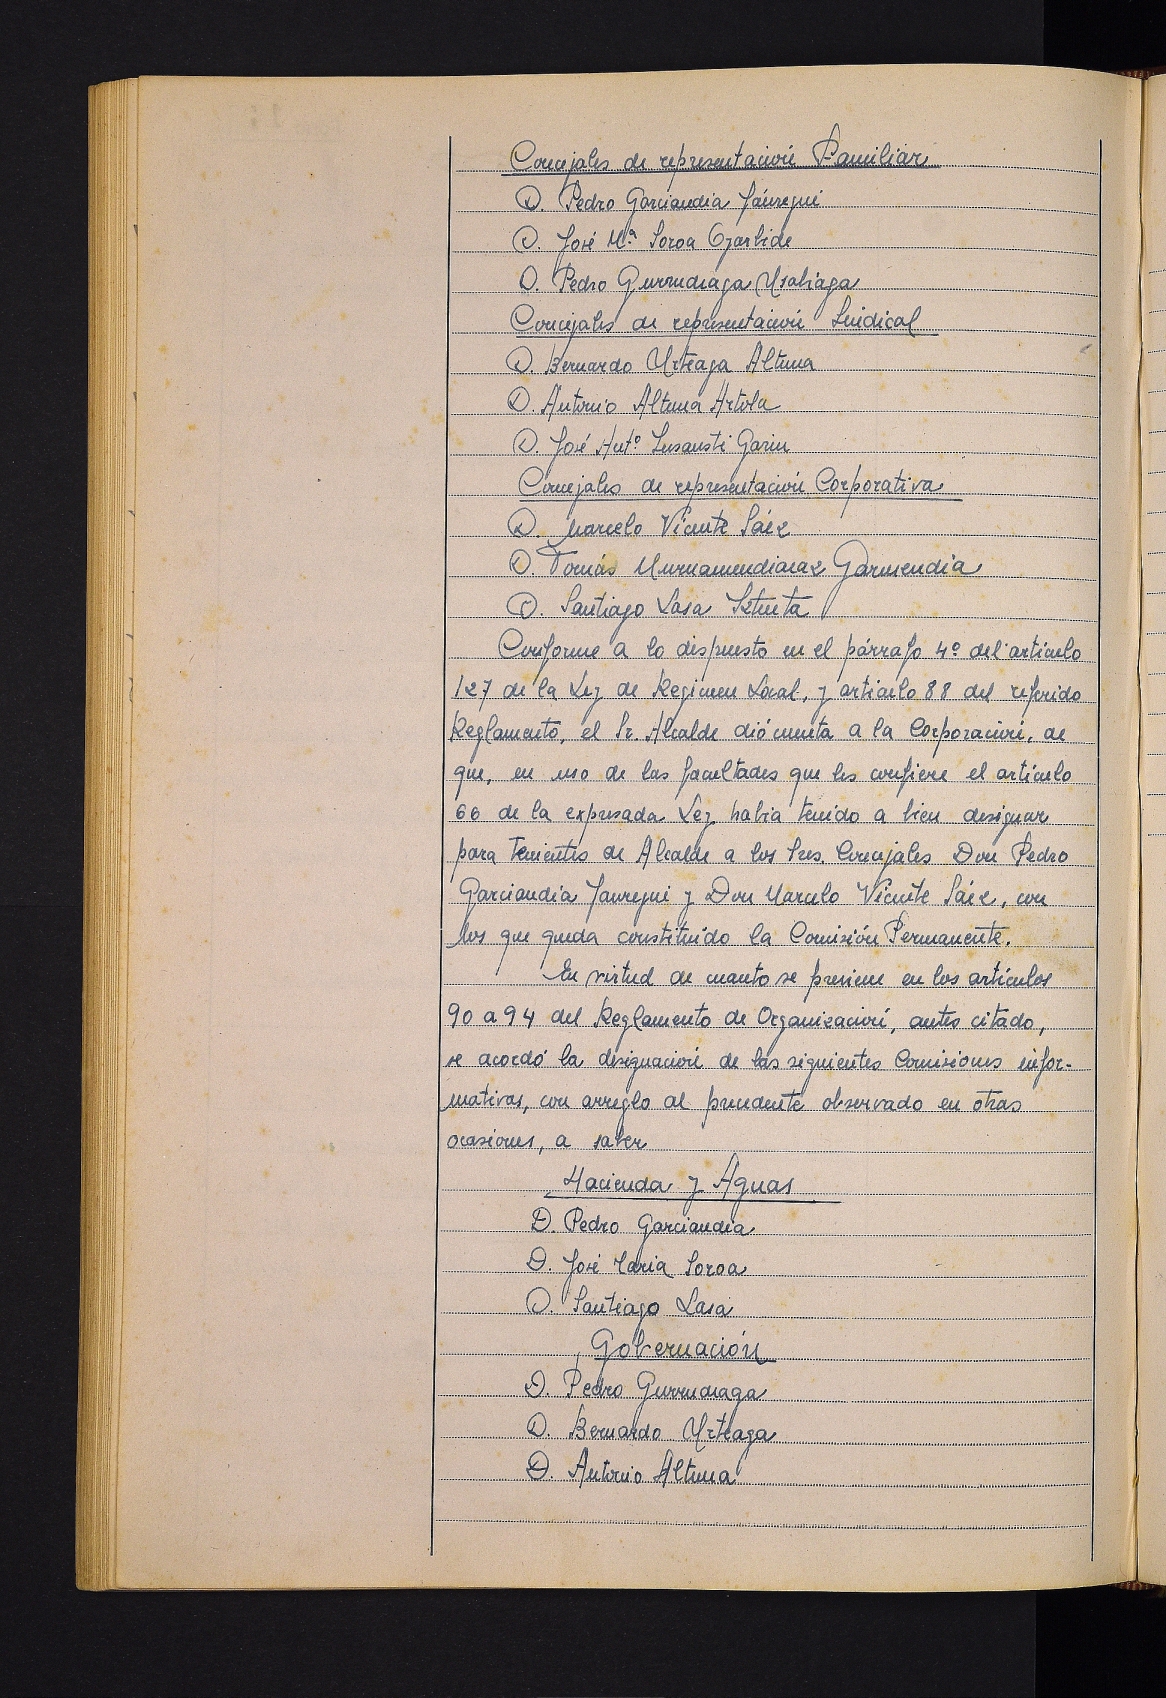 Concejales de representación Familiar
D. Pedro Garciandia Jáuregui
D. José Mª Soroa Oyarbide
D. Pedro Gurrudiaga Usabiaga
Concejales de representación Sindical
D. Bernardo Urteaga Altuna
D. Antonio Altuna Artola
D. José Antº Insausti Garin
Concejales de representación Corporativa
D. Marcelo Vicente Sáez
D. Tomás Murnamendiaraz Garmendia
D. Santiago Lasa Iztueta
Conforme a lo dispuesto en el párrafo 4º del artículo
127 de la Ley de Regimen Local, y artículo 88 del referido
Reglamento, el Sr. Alcalde dió cuenta a la Corporación, de
que, en uso de las facultades que les confiere el artículo
66 de la expresada Ley había tenido a bien designar
para Tenientes de Alcalde a los Sres. Concejales Don Pedro
Garciandia Jauregui y Don Marcelo Vicente Sáez, con
los que queda constituído la Comisión Permanente.
En virtud de cuanto se previene en los artículos
90 a 94 del Reglamento de Organización, antes citado,
se acordó la designación de las siguientes Comisiones infor-
mativas, con arreglo al precedente observado en otras
ocasiones, a saber
Hacienda y Aguas
D. Pedro Garciandia
D. José Maria Soroa
D. Santiago Lasa
Gobernación
D. Pedro Gurrudiaga
D. Bernardo Urteaga
D. Antonio Altuna